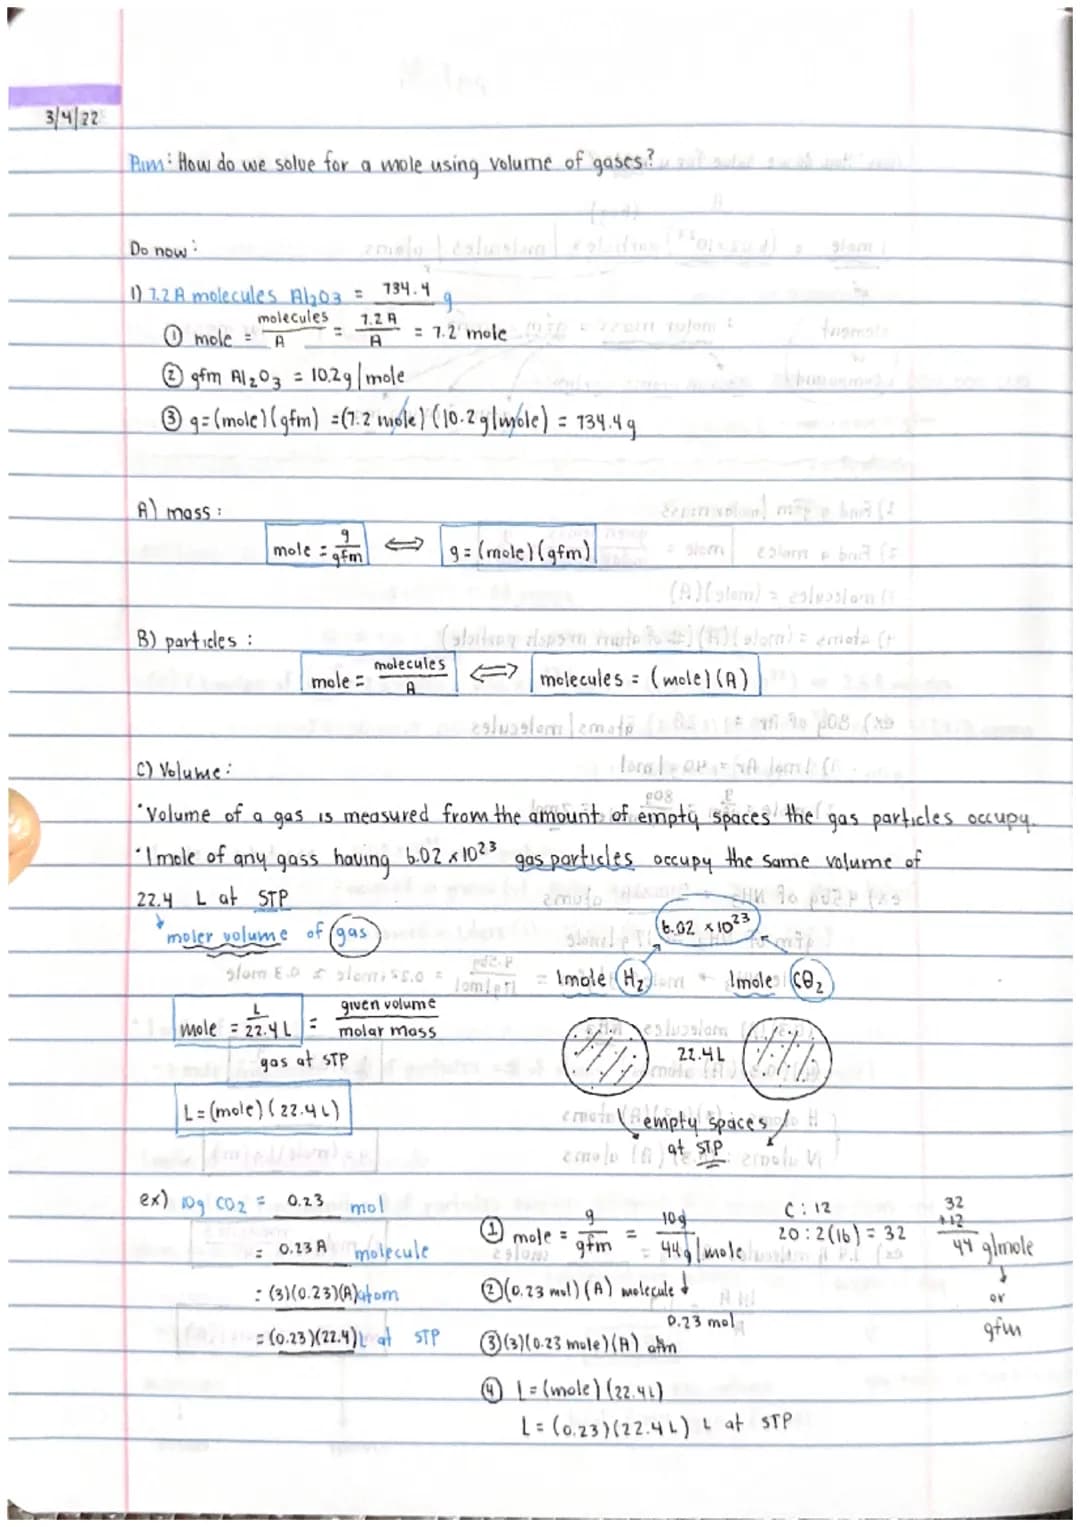 3/4/22
Aim: How do we solve for a mole using volume of gases?
Do now:
1) 7.2 A molecules Al2O3 = 734.4 g
① mole = molecules/A = 7.2 A/A = 7.2 mole
② gfm Al2O3 = 10.2g/mole
③ g=(mole)(gfm) =(7.2 mole)(10.2g/mole) = 734.4g
A) mass:
mole = g/gfm ⇔ g = (mole)(gfm)
B) particles:
mole = molecules/A ⇔ molecules = (mole)(A)
C) Volume:
•Volume of a gas is measured from the amount of empty spaces the gas particles occupy.
•1mole of any gass having 6.02 x 10²³ gas particles occupy the same volume of
22.4 L at STP
moler volume of gas
6.02 x 10²³
1mole H2 1mole CO2
mole = L/22.4L = given volume/molar mass
gas at STP
22.4L
L=(mole)(22.4L)
empty spaces
at STP
ex) 10g CO2 = 0.23 mol
= 0.23 A molecule
= (3)(0.23)(A) atom
= (0.23)(22.4)L at STP
① mole = g/gfm = 10g/44g/mole
0.23 mol
② (0.23 mol)(A) molecule
③ (3)(0.23 mole)(A) atm
④ L=(mole)(22.4L)
L= (0.23)(22.4L) L at STP
C: 12
2O: 2(16) = 32
32
+12
44 g/mole
or
gfm